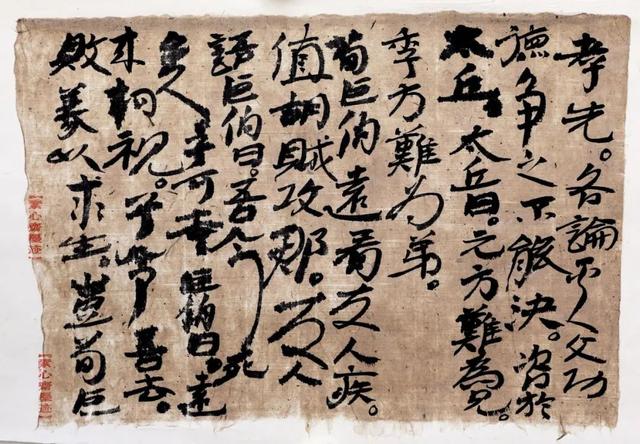 孝先。各論其父功
德爭之不能決。咨於
太丘。太丘曰。元方難為兄。
季方難為弟。
荀巨伯遠看友人疾。
值胡賊攻郡。友人
語巨伯曰。吾今死
矣子可去巨伯曰。遠
来相視。子令吾去。
敗義以求生。豈荀巨
心齋墨迹
心齋墨迹